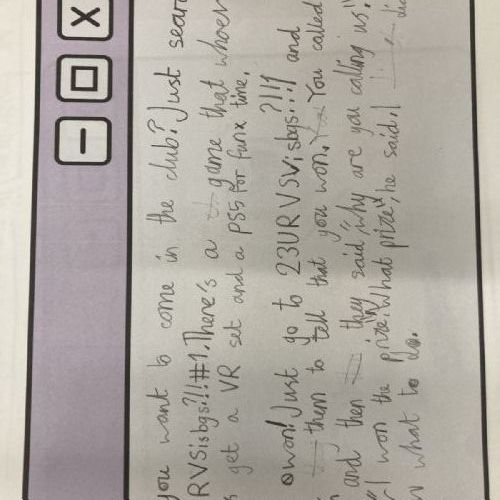 you want to come in the club? Just sear
RVSisbgs?!!#1. There's a game that whoev
s get a VR set and a PS5 for funix time.
won! Just go to 23URVSVisbgs?!!1 and
them to tell that you won. You called
and then they said, "why are you calling us."
I won the prize. "What prize", he said. I
what to do.